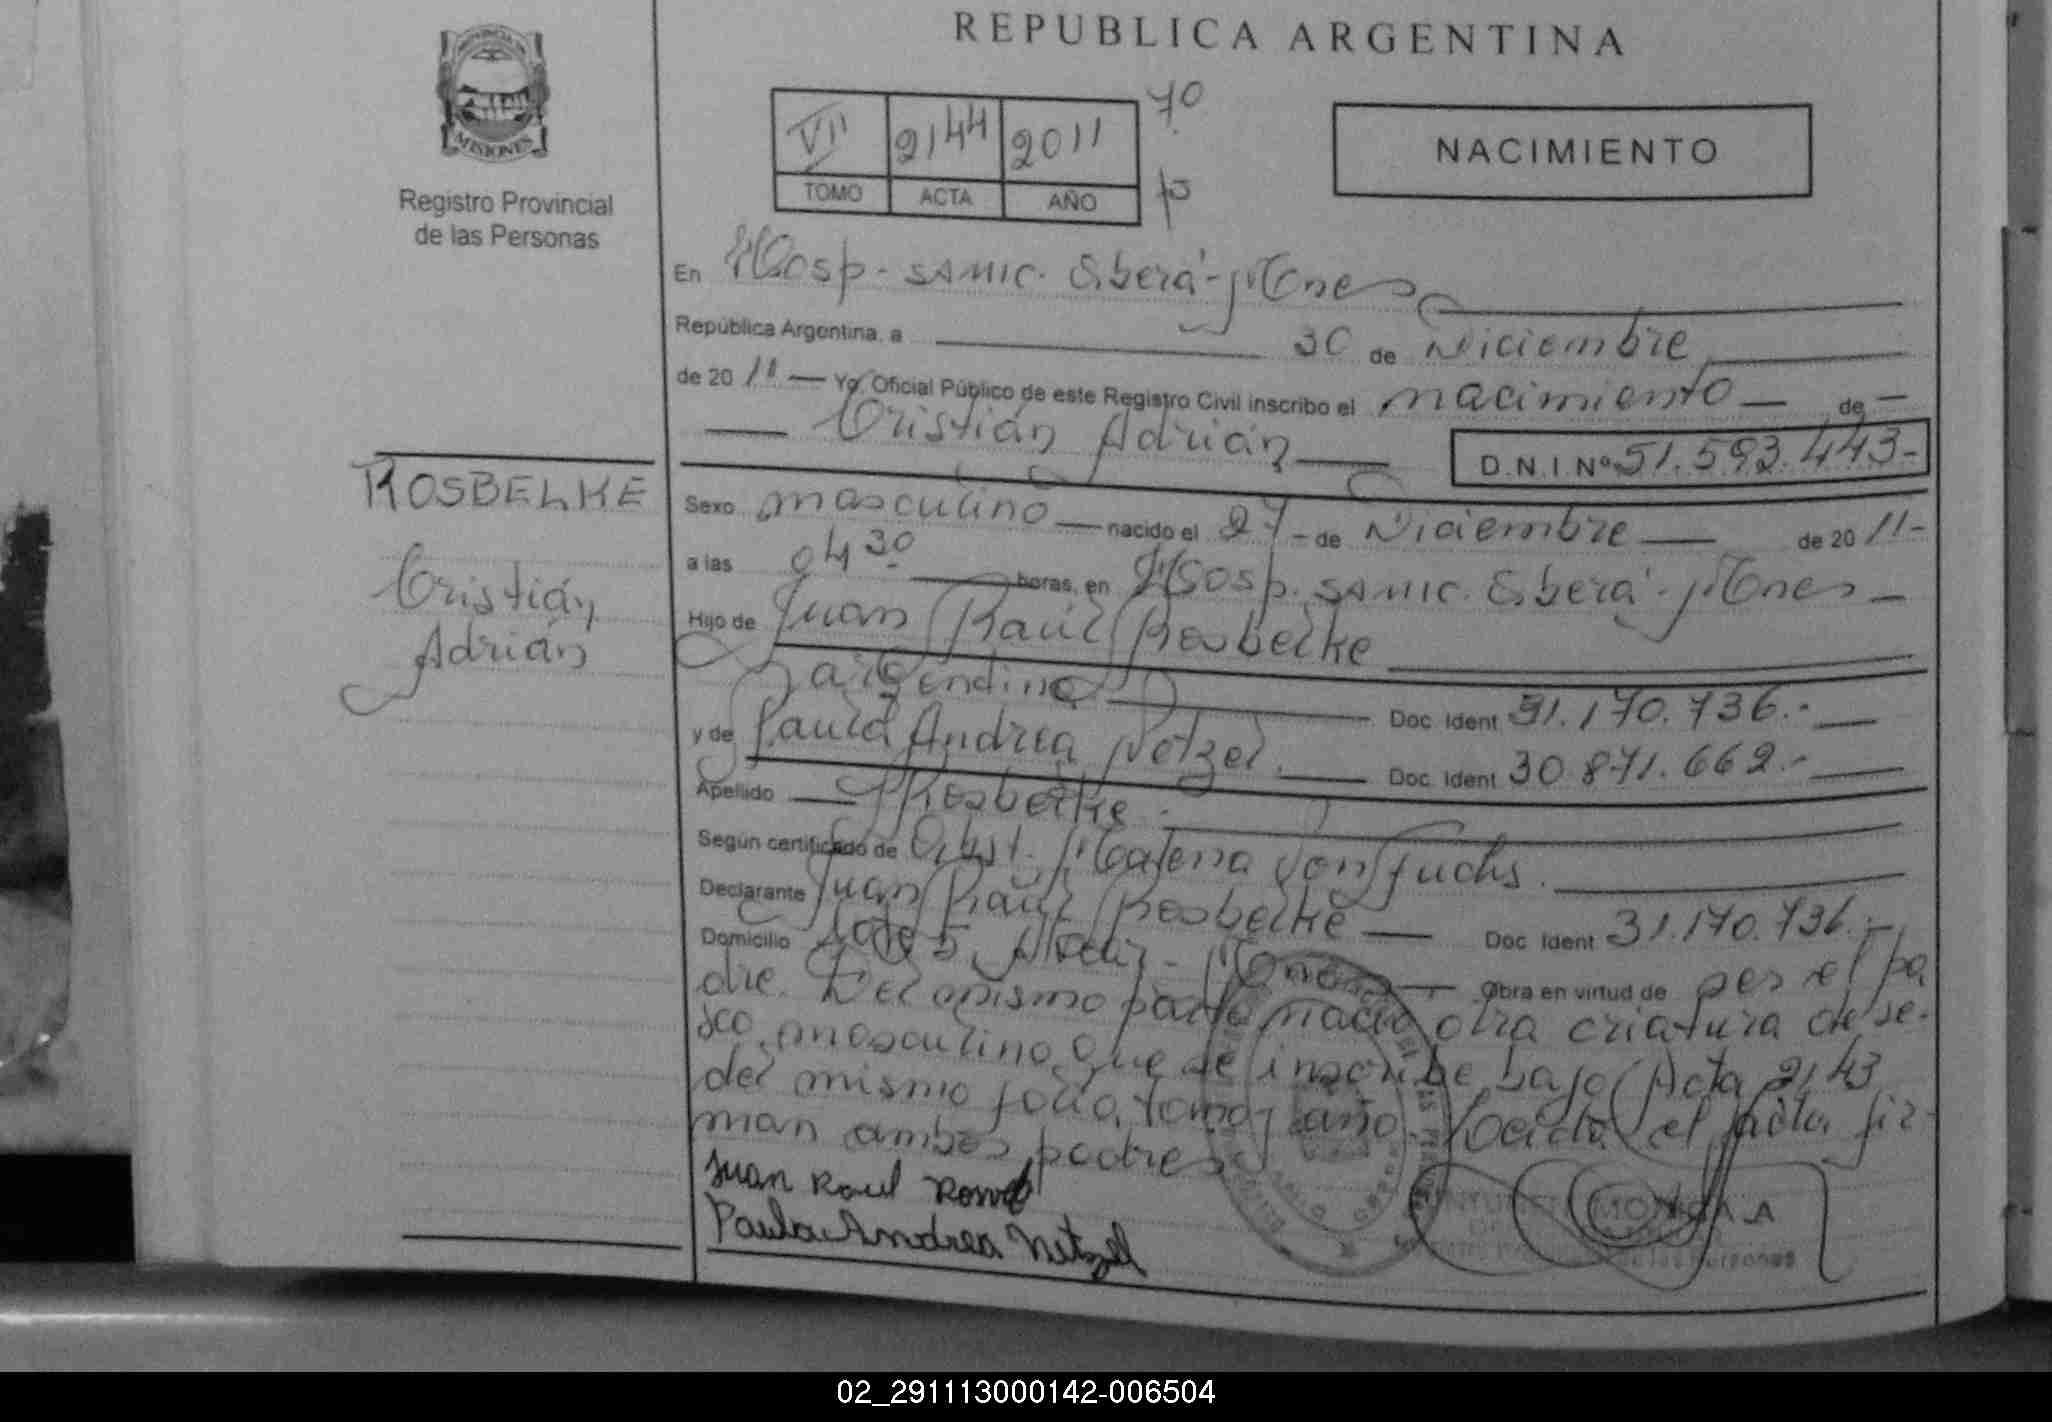 REPUBLICA ARGENTINA
PROVINCIA DE
MISIONES
Registro Provincial
de las Personas
VII 2144 2011 70
TOMO ACTA AÑO
NACIMIENTO
En Hosp. SAMIC. Eberá-Mnes
República Argentina, a 30 de Diciembre
de 2011 Yo, Oficial Público de este Registro Civil inscribo el nacimiento de
Cristián Adrián D.N.I.Nº 51.593.443-
ROSBELKE
Cristián
Adrián
Sexo masculino nacido el 27 de Diciembre de 2011-
a las 04 30 horas, en Hosp. SAMIC. Eberá-Mnes
Hijo de Juan Raúl Rosbelke
argentino Doc. Ident 31.170.736.-
y de Paula Andrea Netzel. Doc. Ident 30.871.662.-
Apellido Rosbelke.-
Según certificado de Obst. Malena Von Fuchs.
Declarante Juan Raúl Rosbelke Doc Ident 31.170.736.-
Domicilio Lote 5, Mnes Obra en virtud de ser el pa
dre. Del mismo parto nació otra criatura de se-
xo masculino que se inscribe bajo Acta 2143
del mismo folio, tomo y año. Leída el Acta fir-
man ambos padres
Juan Raul
Paula Andrea Netzel
MONICA A
02_291113000142-006504